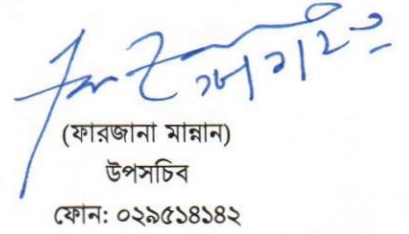 (ফারজানা মান্নান)
উপসচিব
ফোন: ০২৯৫১৪১৪২